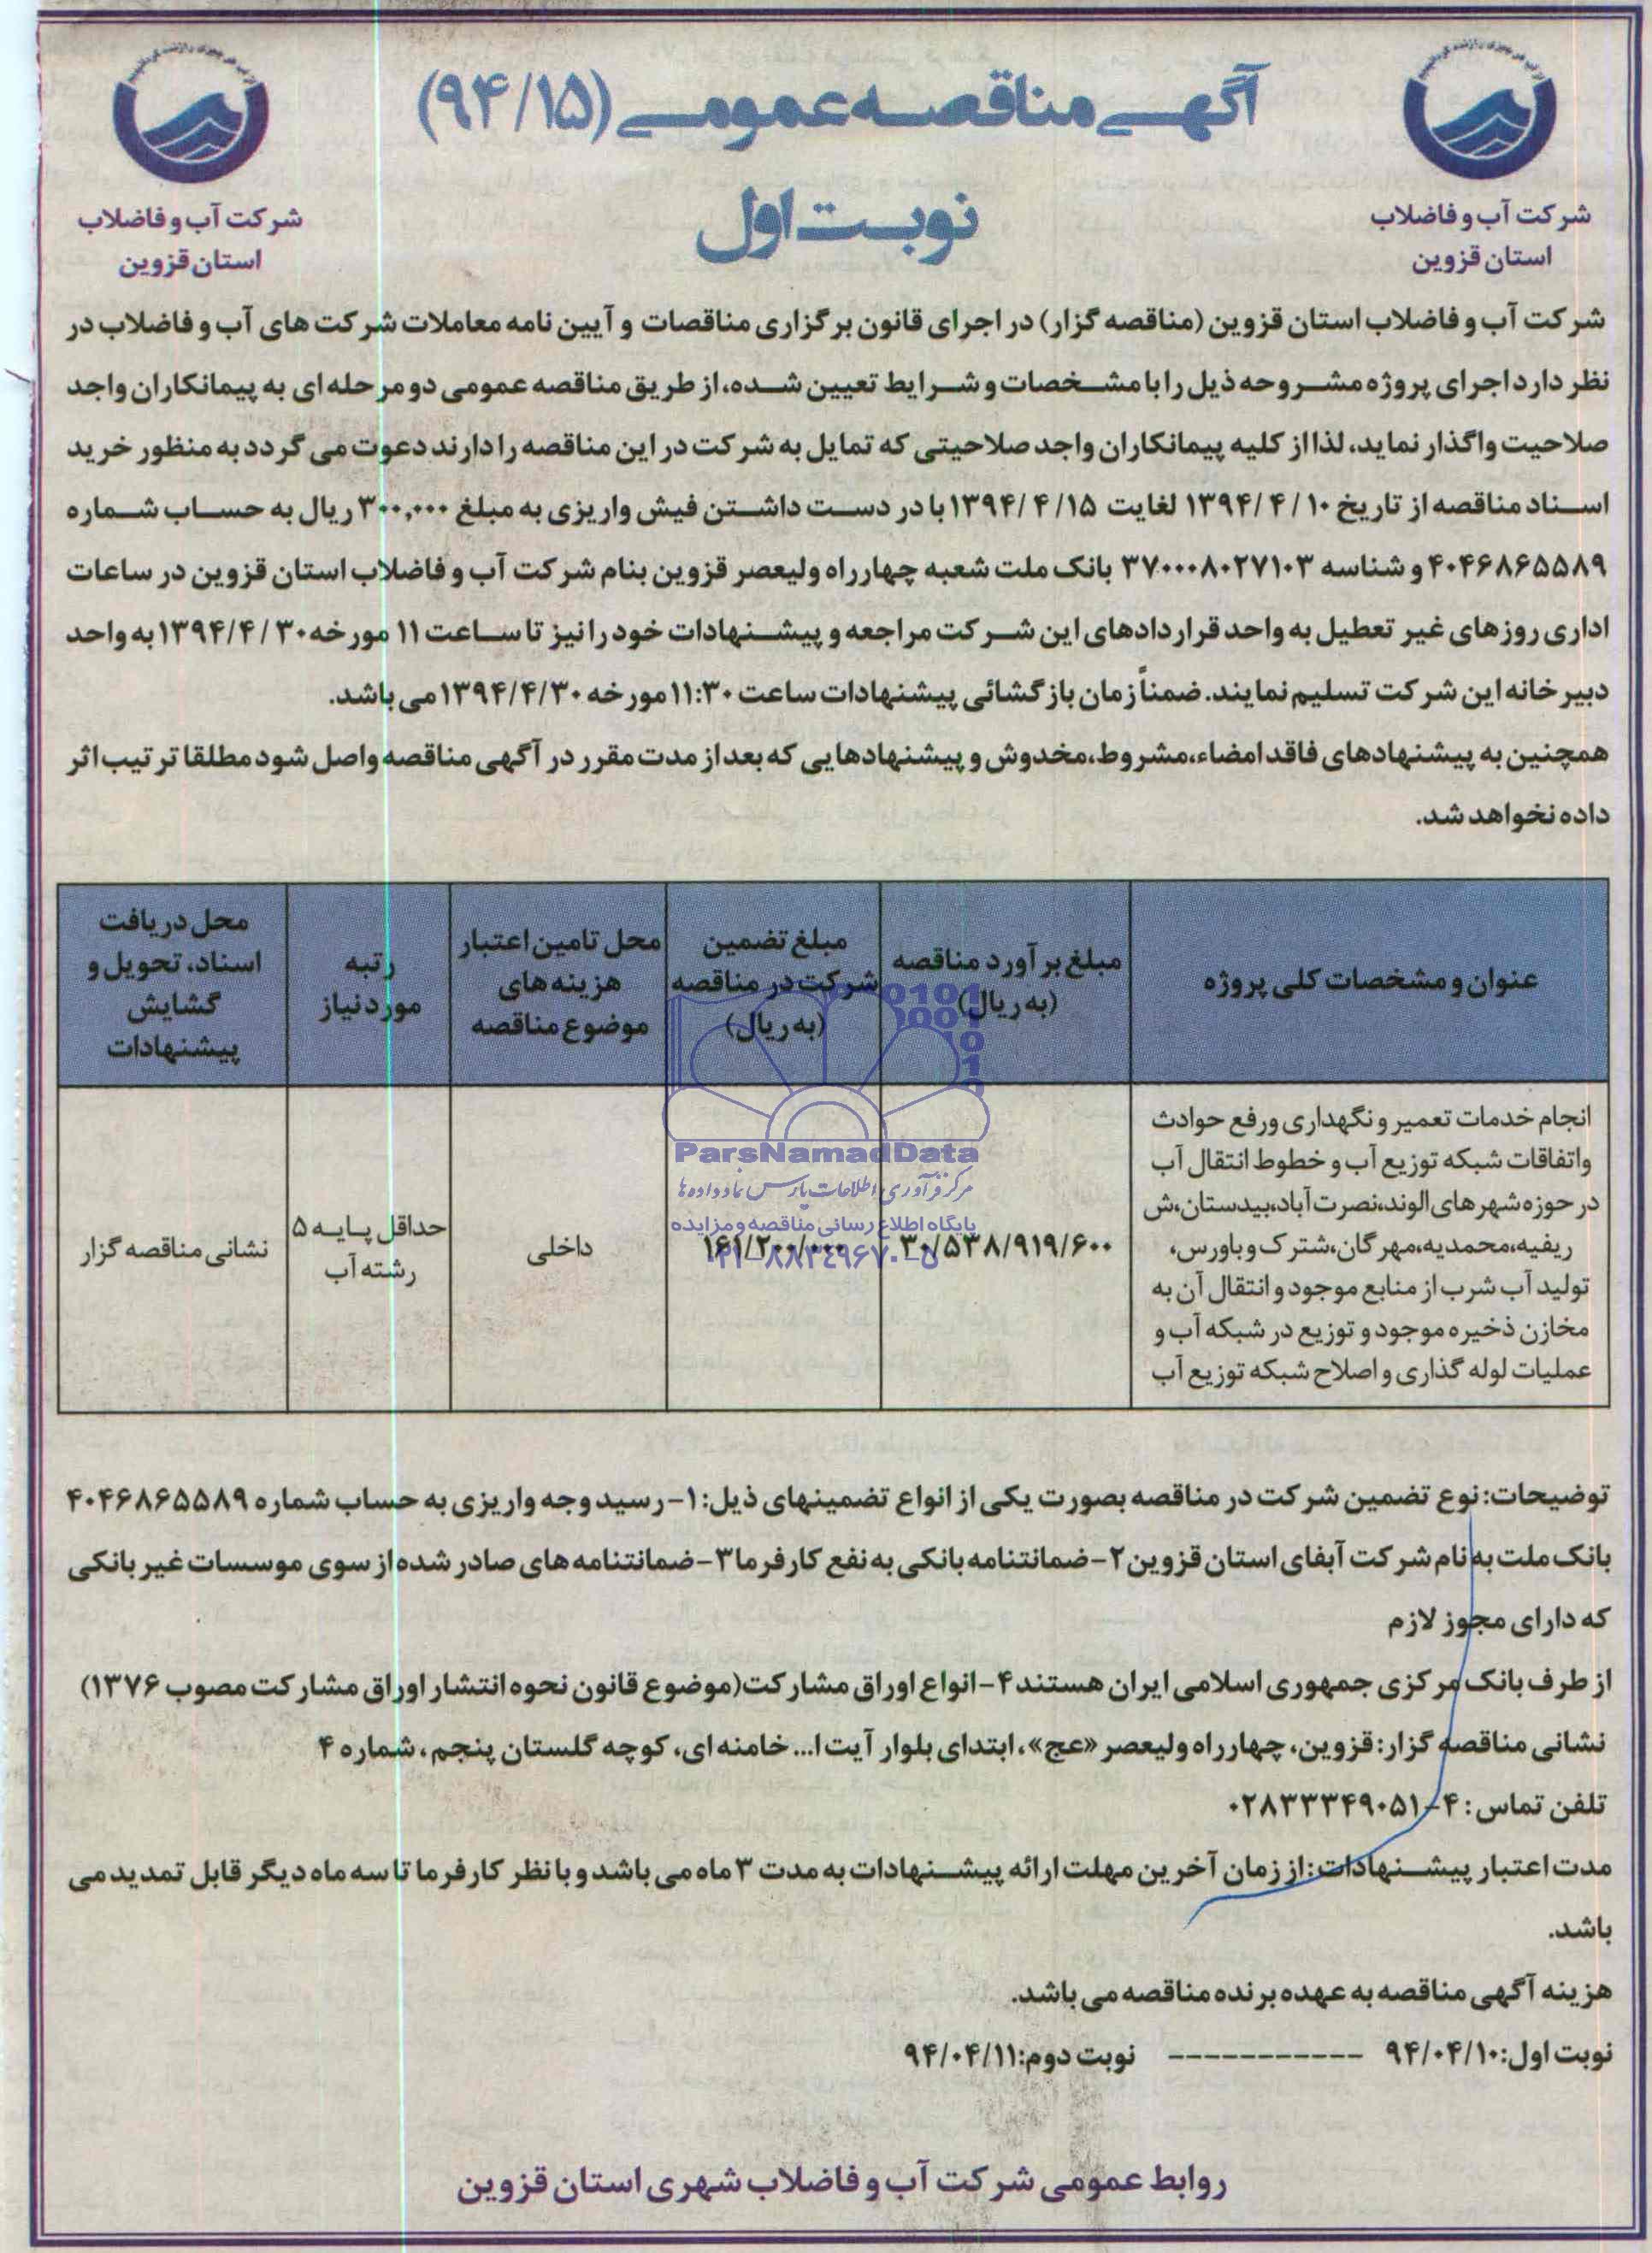 آگهی مناقصه عمومی (۹۴/۱۵)
نوبت اول
شرکت آب و فاضلاب
استان قزوین
شرکت آب و فاضلاب
استان قزوین
شرکت آب و فاضلاب استان قزوین (مناقصه گزار) در اجرای قانون برگزاری مناقصات و آیین نامه معاملات شرکت های آب و فاضلاب در
نظر دارد اجرای پروژه مشروحه ذیل را با مشخصات و شرایط تعیین شده، از طریق مناقصه عمومی دو مرحله ای به پیمانکاران واجد
صلاحیت واگذار نماید، لذا از کلیه پیمانکاران واجد صلاحیتی که تمایل به شرکت در این مناقصه را دارند دعوت می گردد به منظور خرید
اسناد مناقصه از تاریخ ۱۰ / ۴ /۱۳۹۴ لغایت ۱۵/ ۴ /۱۳۹۴ با در دست داشتن فیش واریزی به مبلغ ۳۰۰,۰۰۰ ریال به حساب شماره
۴۰۴۶۸۶۵۵۸۹ و شناسه ۳۷۰۰۰۸۰۲۷۱۰۳ بانک ملت شعبه چهارراه ولیعصر قزوین بنام شرکت آب و فاضلاب استان قزوین در ساعات
اداری روزهای غیر تعطیل به واحد قراردادهای این شرکت مراجعه و پیشنهادات خود را نیز تا ساعت ۱۱ مورخه ۳۰ /۱۳۹۴/۴ به واحد
دبیرخانه این شرکت تسلیم نمایند. ضمناً زمان بازگشائی پیشنهادات ساعت ۱۱:۳۰ مورخه ۱۳۹۴/۴/۳۰ می باشد.
همچنین به پیشنهادهای فاقد امضاء، مشروط، مخدوش و پیشنهادهایی که بعد از مدت مقرر در آگهی مناقصه واصل شود مطلقا ترتیب اثر
داده نخواهد شد.
عنوان و مشخصات کلی پروژه
مبلغ برآورد مناقصه
(به ریال)
مبلغ تضمین
شرکت در مناقصه
(به ریال)
محل تامین اعتبار
هزینه های
موضوع مناقصه
رتبه
مورد نیاز
محل دریافت
اسناد، تحویل و
گشایش
پیشنهادات
انجام خدمات تعمیر و نگهداری ورفع حوادث
واتفاقات شبکه توزیع آب و خطوط انتقال آب
در حوزه شهرهای الوند،نصرت آباد،بیدستان،ش
ریفیه،محمدیه،مهرگان،شترک وباورس،
تولید آب شرب از منابع موجود و انتقال آن به
مخازن ذخیره موجود و توزیع در شبکه آب و
عملیات لوله گذاری و اصلاح شبکه توزیع آب
۳۰/۵۳۸/۹۱۹/۶۰۰
۱۶۱/۲۰۰/۰۰۰
داخلی
حداقل پایه ۵
رشته آب
نشانی مناقصه گزار
ParsNamadData
مرکز فرآوری اطلاعات پارس نماد داده ها
پایگاه اطلاع رسانی مناقصه و مزایده
۰۲۱-۸۸۳۴۹۶۷۰-۵
توضیحات: نوع تضمین شرکت در مناقصه بصورت یکی از انواع تضمینهای ذیل: ۱- رسید وجه واریزی به حساب شماره ۴۰۴۶۸۶۵۵۸۹
بانک ملت به نام شرکت آبفای استان قزوین ۲- ضمانتنامه بانکی به نفع کارفرما ۳- ضمانتنامه های صادر شده از سوی موسسات غیر بانکی
که دارای مجوز لازم
از طرف بانک مرکزی جمهوری اسلامی ایران هستند ۴- انواع اوراق مشارکت (موضوع قانون نحوه انتشار اوراق مشارکت مصوب ۱۳۷۶)
نشانی مناقصه گزار: قزوین، چهارراه ولیعصر «عج»، ابتدای بلوار آیت ا... خامنه ای، کوچه گلستان پنجم، شماره ۴
تلفن تماس: ۴-۰۲۸۳۳۳۴۹۰۵۱
مدت اعتبار پیشنهادات: از زمان آخرین مهلت ارائه پیشنهادات به مدت ۳ ماه می باشد و با نظر کارفرما تا سه ماه دیگر قابل تمدید می
باشد.
هزینه آگهی مناقصه به عهده برنده مناقصه می باشد.
نوبت اول: ۹۴/۰۴/۱۰ ----------- نوبت دوم: ۹۴/۰۴/۱۱
روابط عمومی شرکت آب و فاضلاب شهری استان قزوین